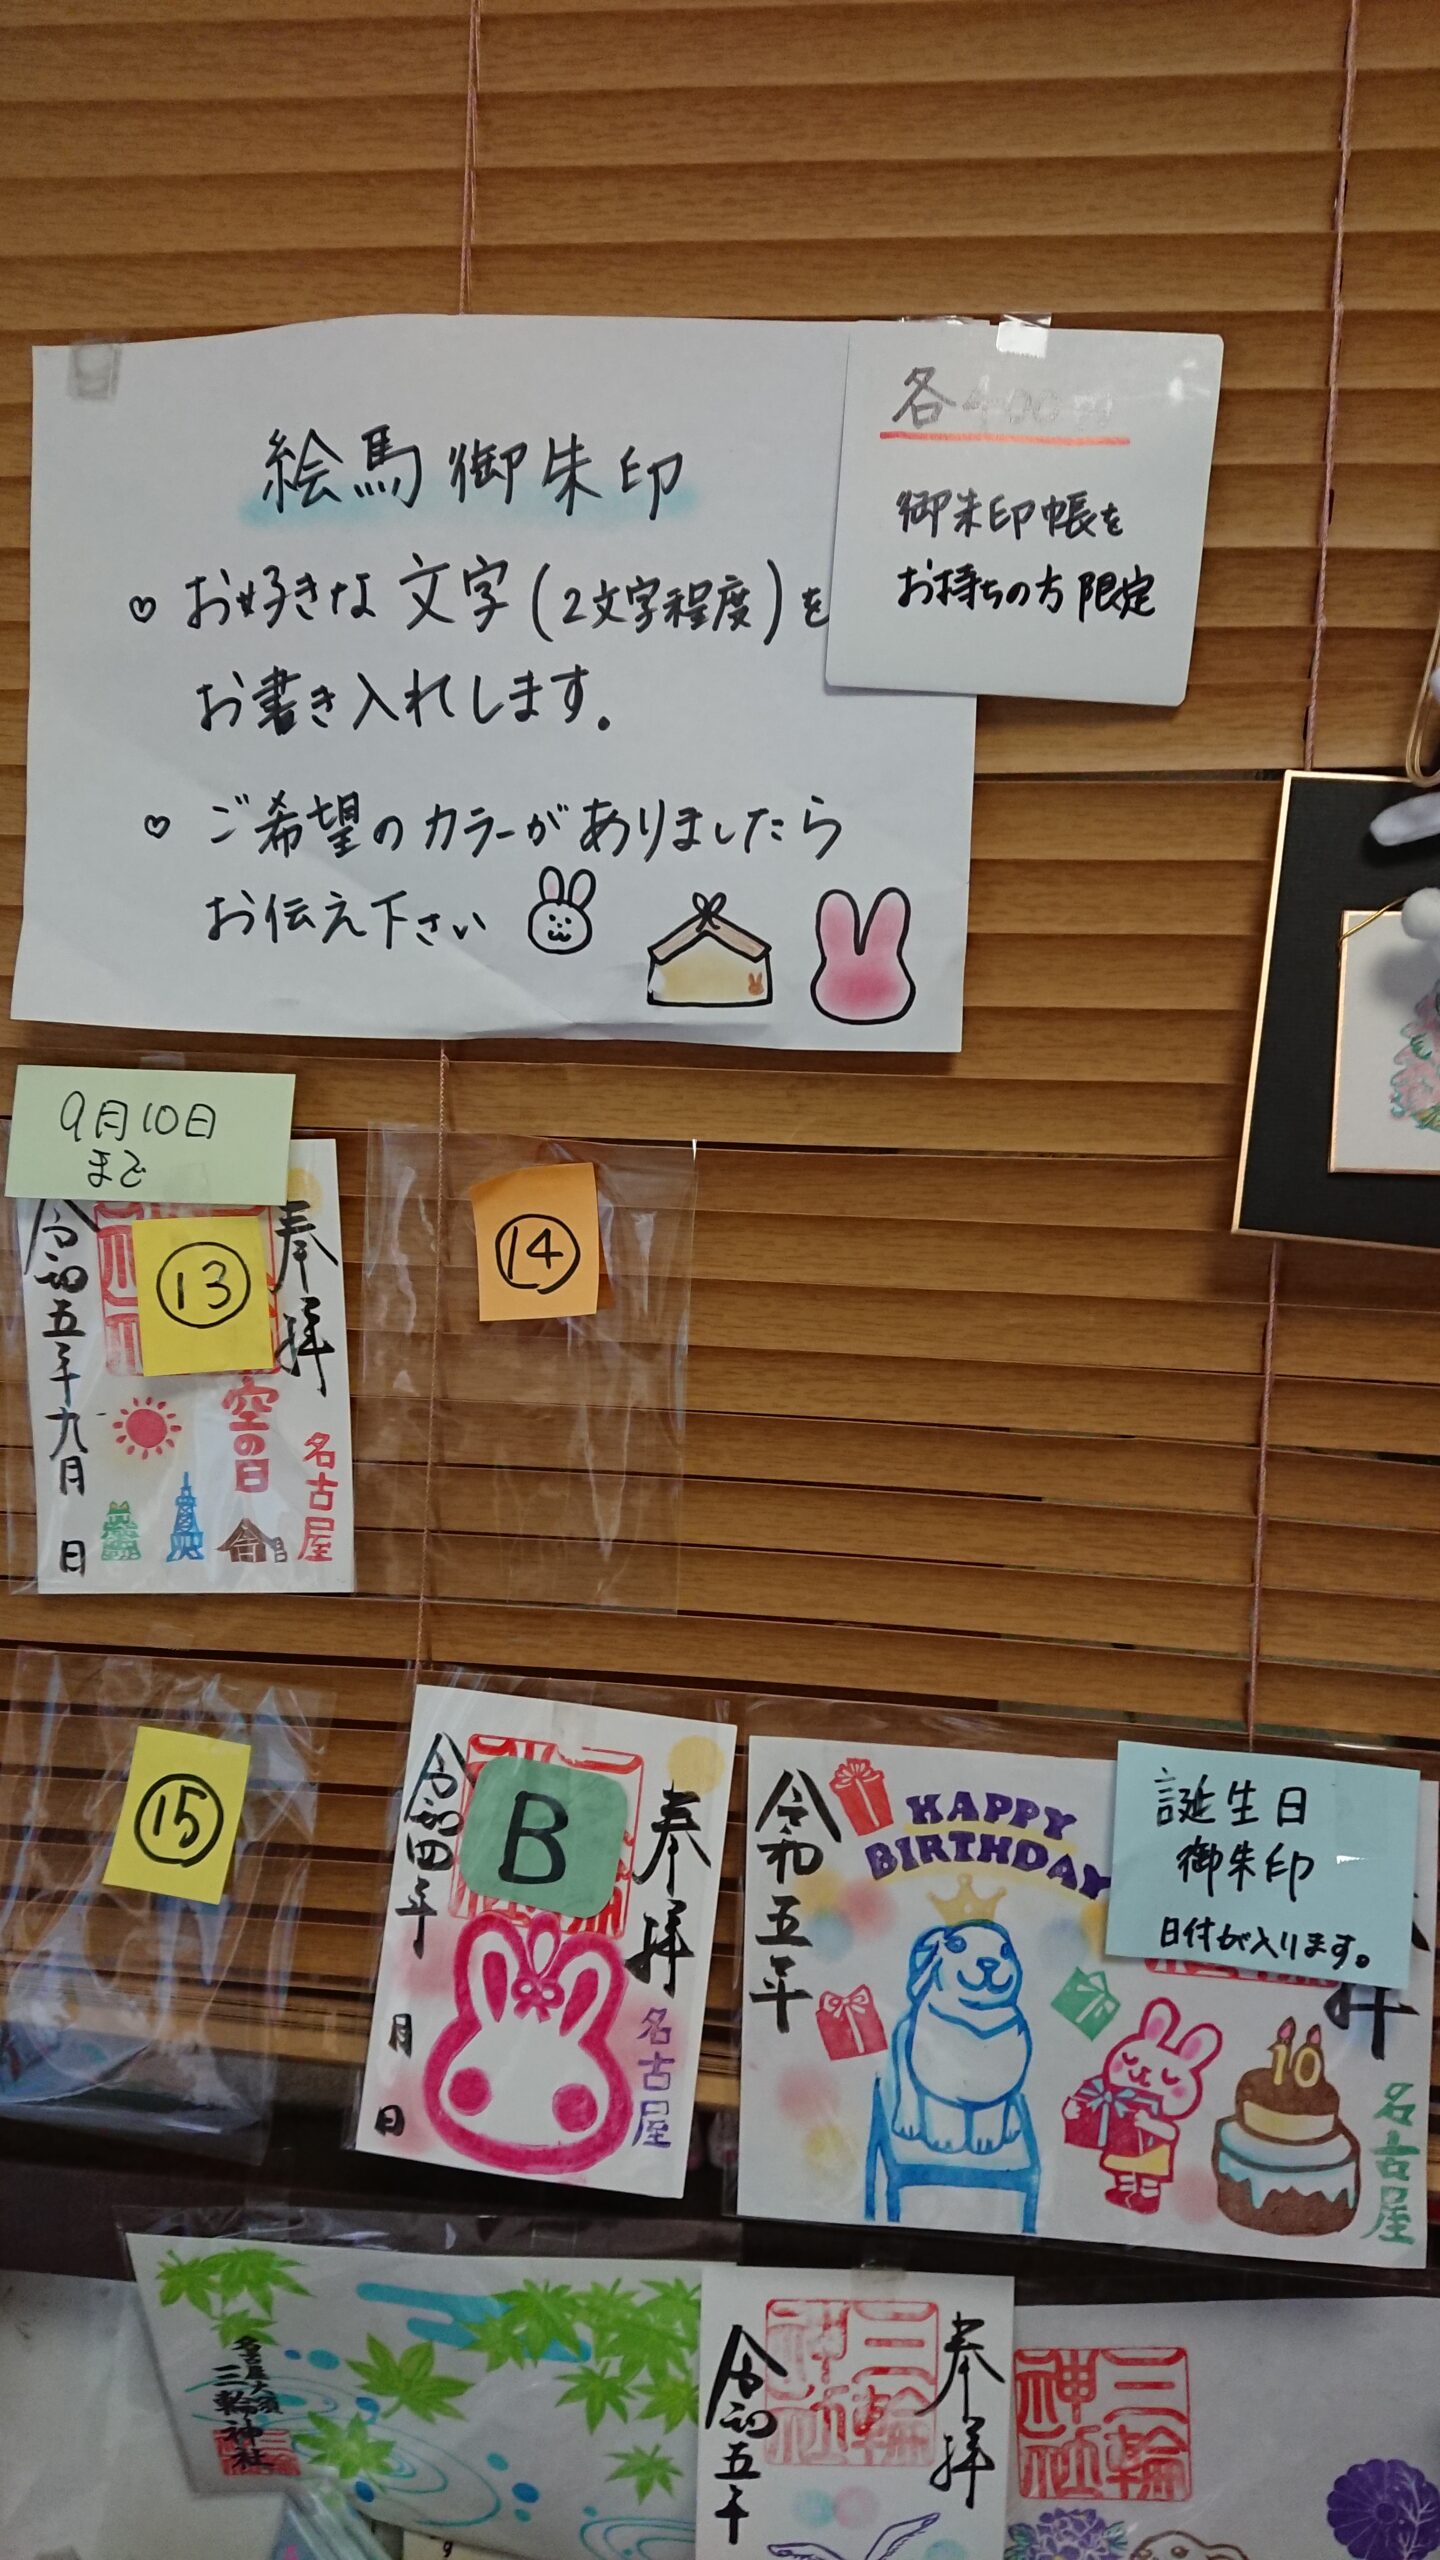 絵馬御朱印
♡ お好きな文字(2文字程度)を
お書き入れします。
♡ ご希望のカラーがありましたら
お伝え下さい
各400円
御朱印帳を
お持ちの方限定
9月10日
まで
⑬
奉拝
空の日
名古屋
令和五年九月 日
⑭
⑮
B
奉拝
名古屋
令和四年 月 日
HAPPY
BIRTHDAY
令和五年
誕生日
御朱印
日付が入ります。
拝
10
名古屋
名古屋大須
三輪神社
奉拝
三輪神社
令和五年
三輪神社